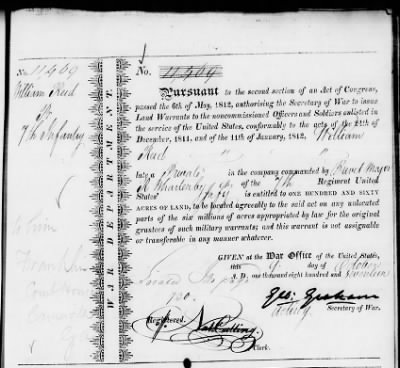 No. 11,469
William Reed
7th Infantry
To him
Franklin
WAR DEPARTMENT.
No. 11,469
Pursuant to the second section of an Act of Congress,
passed the 6th of May, 1812, authorising the Secretary of War to issue
Land Warrants to the noncommissioned Officers and Soldiers enlisted
in the service of the United States, conformably to the acts of the 24th of
December, 1811, and of the 11th of January, 1812, William
Reed
late a Private
in the company commanded by Brevet Major
of the 7th Regiment United
States' is entitled to ONE HUNDRED AND SIXTY
ACRES OF LAND, to be located agreeably to the said act on any unlocated
parts of the six millions of acres appropriated by law for the original
grantees of such military warrants; and this warrant is not assignable
or transferable in any manner whatever.
GIVEN at the War Office of the United States,
this 9 day of October
A. D. one thousand eight hundred and seventeen
Geo: Graham
Acting Secretary of War.
Registered.
Nat Cutting,
Clerk.